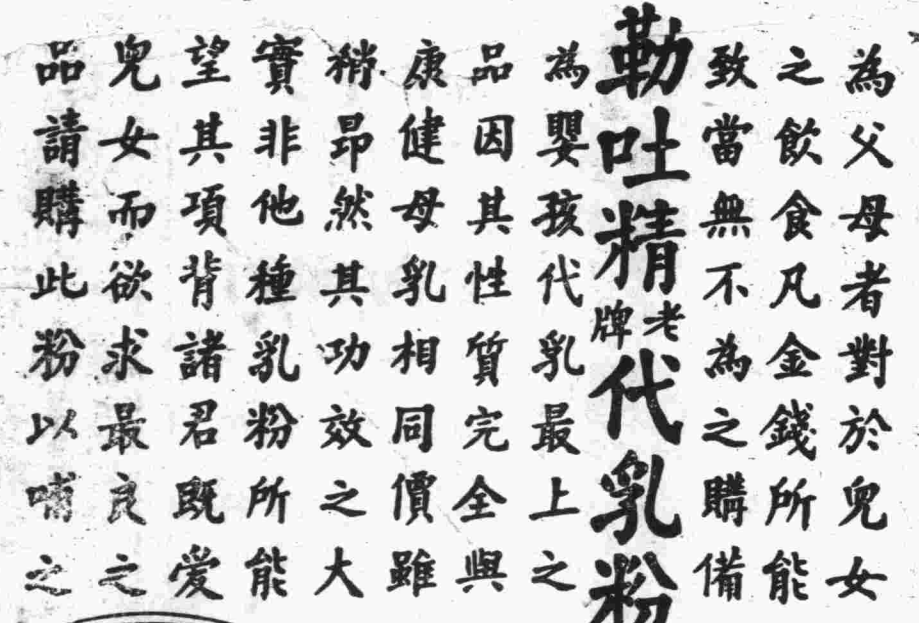 為父母者對於兒女
之飲食凡金錢所能
致當無不為之購備
勒吐精老牌代乳粉
為嬰孩代乳最上之
品因其性質完全與
康健母乳相同價雖
稍昂然其功效之大
實非他種乳粉所能
望其項背諸君既愛
兒女而欲求最良之
品請購此粉以哺之